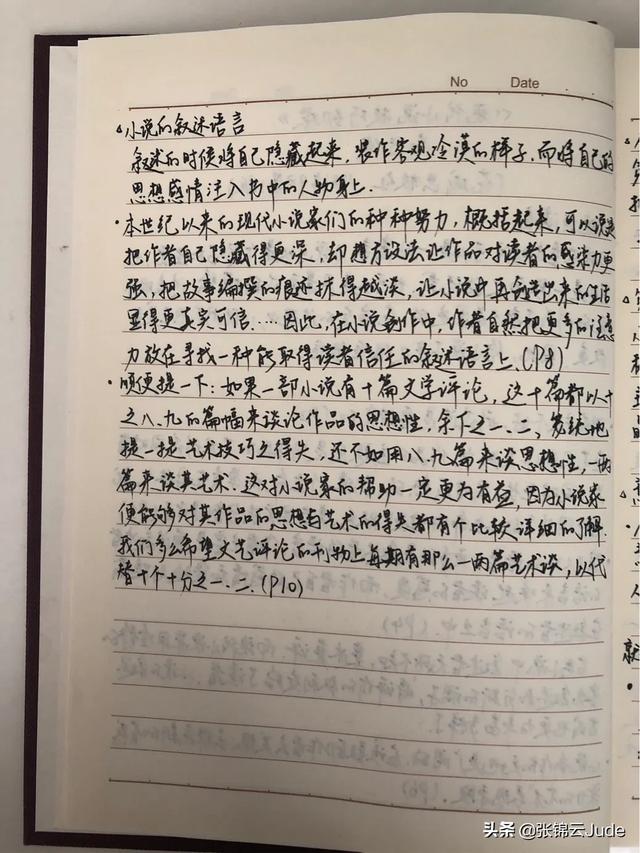 No Date
小说的叙述语言
叙述的时候将自己隐藏起来，装作客观冷漠的样子，而将自己的
思想感情注入书中的人物身上.
·本世纪以来的现代小说家们的种种努力，概括起来，可以说是
把作者自己隐藏得更深，却想方设法让作品对读者的感染力更
强，把故事编撰的痕迹抹得越淡，让小说中再创造出来的生活
显得更真实可信.…因此，在小说创作中，作者自然把更多的注意
力放在寻找一种能取得读者信任的叙述语言上.(P8)
·顺便提一下：如果一部小说有十篇文学评论，这十篇都以十
之八、九的篇幅来谈论作品的思想性，余下之一、二，笼统地
提一提艺术技巧之得失，还不如用八、九篇来谈思想性，一两
篇来谈其艺术.这对小说家的帮助一定更为有益，因为小说家
便能够对其作品的思想与艺术的得失都有个比较详细的了解.
我们多么希望文艺评论的刊物上每期有那么一两篇艺术谈，以代
替十个十分之一、二.(P10)
头条 @张锦云Jude